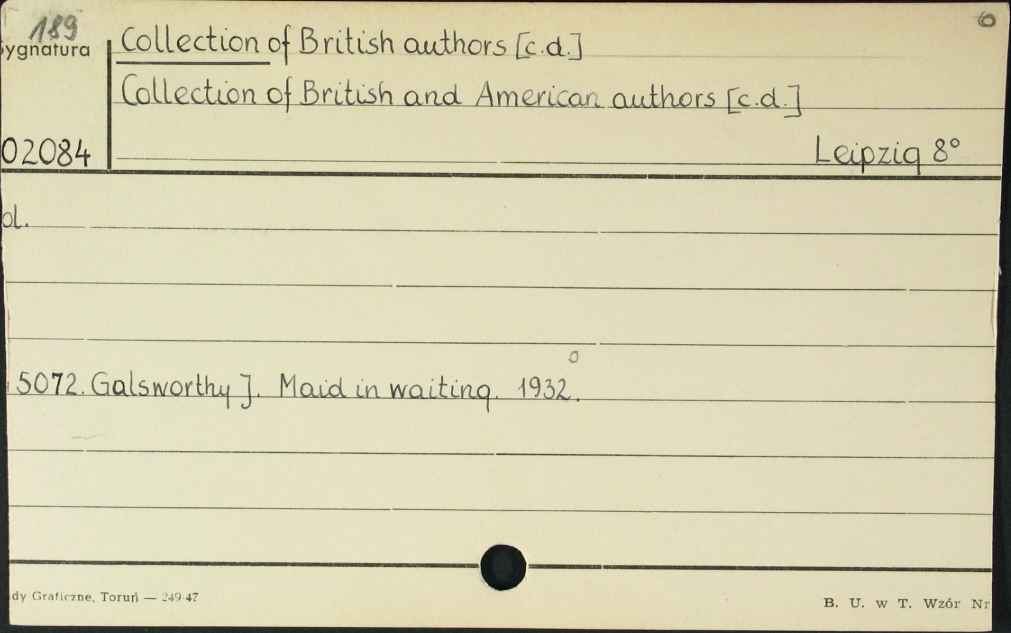 189
ygnatura
Collection of British authors [c.d.]
Collection of British and American authors [c.d.]
02084
Leipzig 8°
ol.
5072. Galsworthy J. Maid in waiting. 1932.
dy Graficzne, Toruń — 249 47
B. U. w T. Wzór Nr